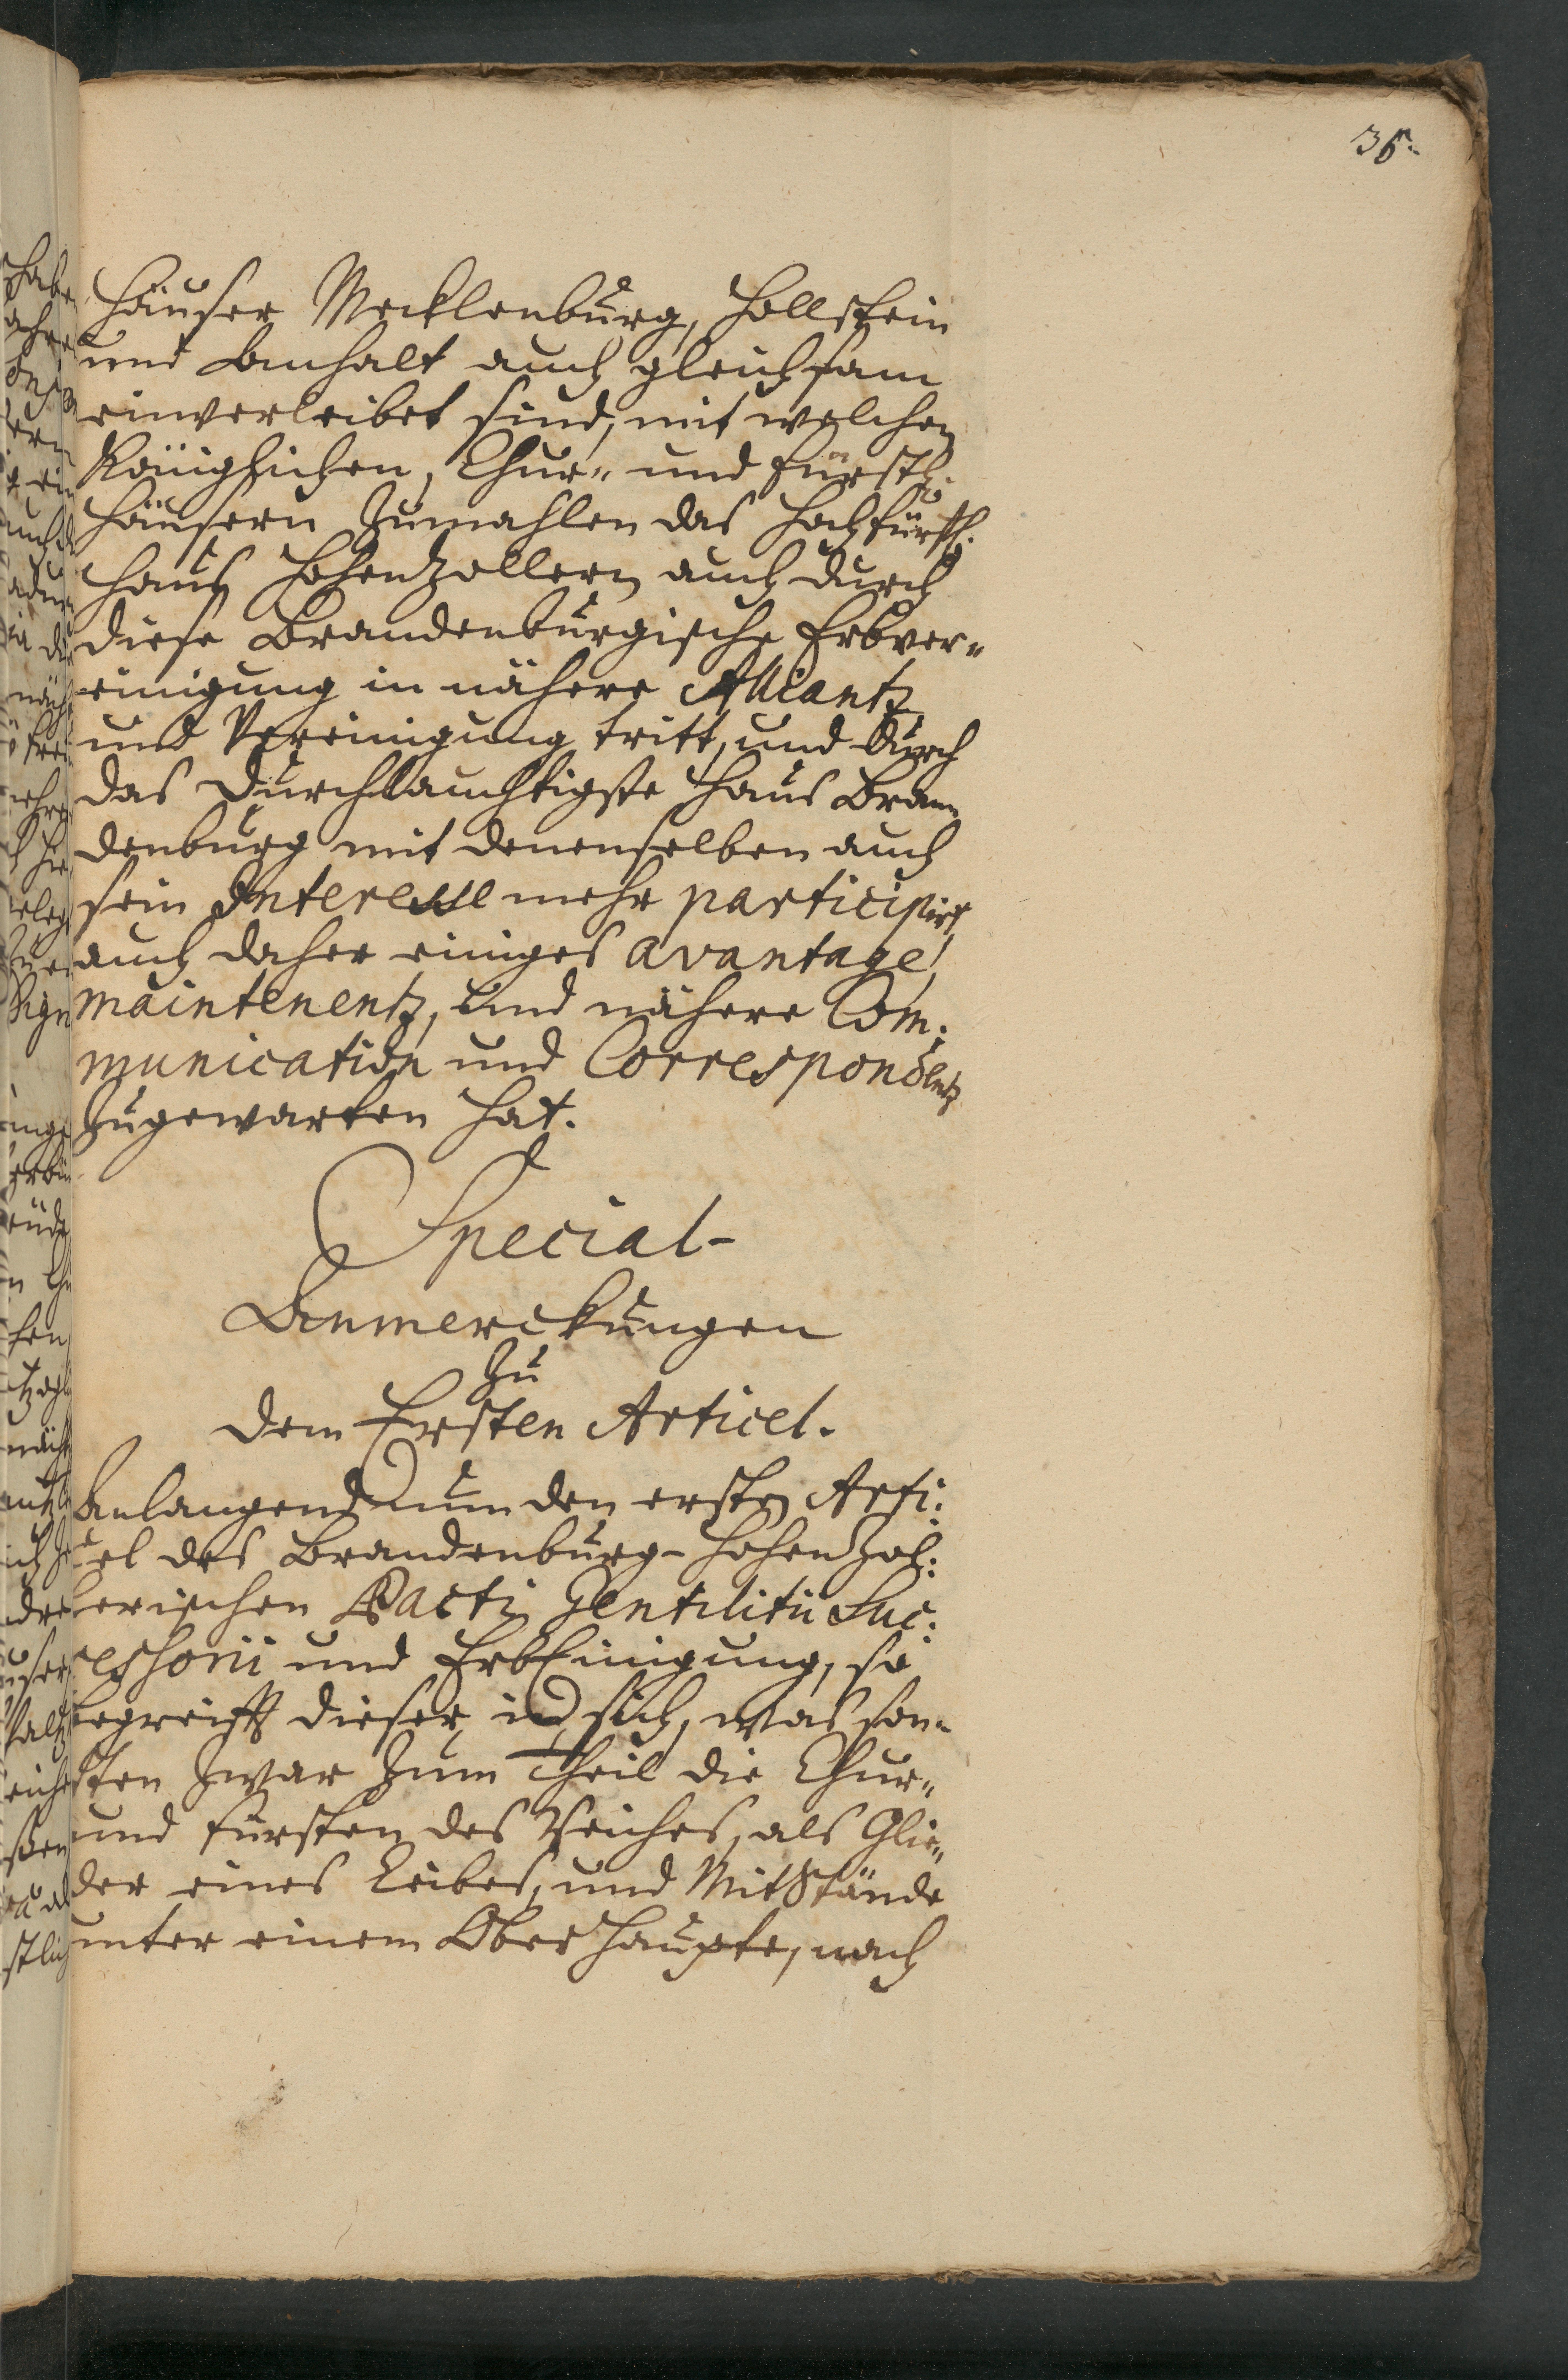 36.
Häuser Mecklenburg, Hollstein
und Anhalt auch gleichsam
einverleibet sind, mit welchen
Königlichen, Chur- und Fürstl.
Häusern Zumahlen das Hochfürstl.
Hauß HohenZollern auch durch
diese Brandenburgische Erbver-
einigung in nähere Alliantz
und Vereinigung tritt, und durch
das Durchlauchtigste Haus Bran-
denburg mit denenselben auch
sein Interesse mehr participirt,
auch daher einiges avantage,
maintenentz, und nähere Com:
munication und Correspondentz
Zugewarten hat.
Special-
Anmerckungen
Zu
dem Ersten Articel.
Anlangend nun den ersten Arti:
cel des Brandenburg-HohenZol:
lerischen Pacti Gentilitii Suc:
cessorii und ErbEinigung, so
begreifft dieser in sich, was son-
sten Zwar Zum Theil die Chur-
und Fürsten des Reiches, als Glie-
der eines Leibes, und MitStände
unter einem OberHaupte, nach